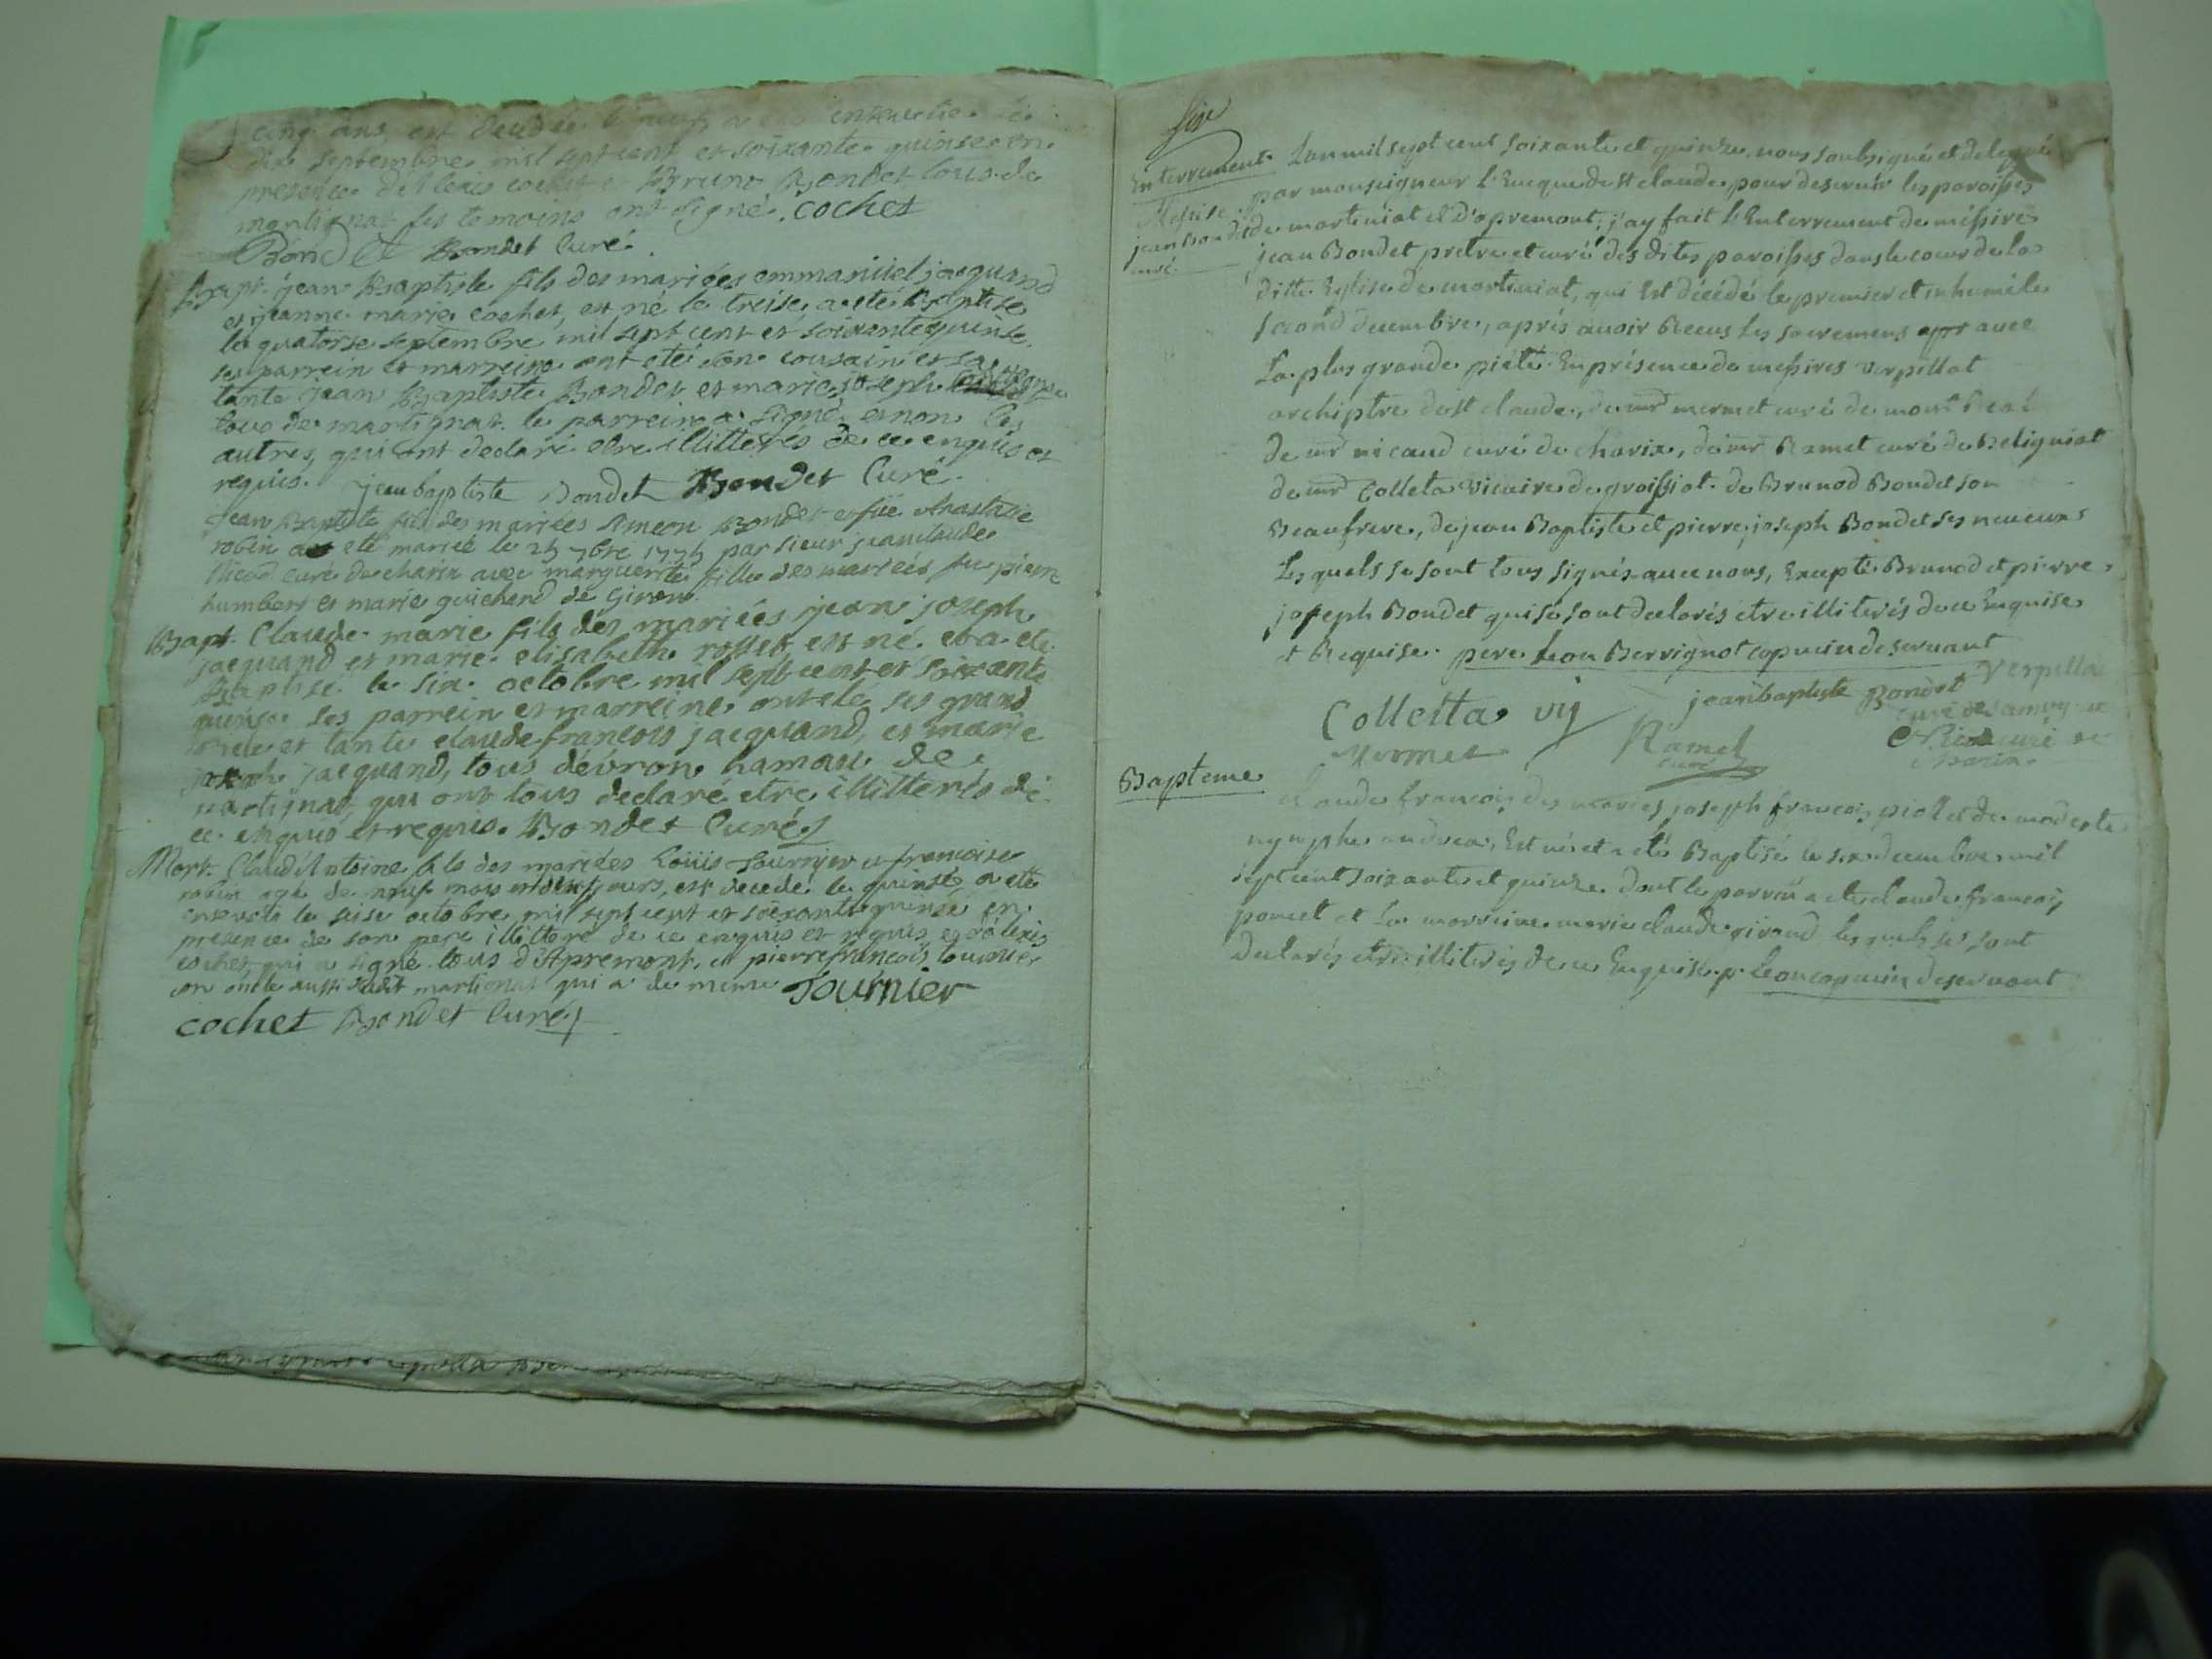 cinq ans, est decedée
dix septembre mil sept cent et soixante quinse en
presence d'Alexis cochet et Bruno Bondet tous de
martignat les temoins ont signé. cochet
Bondet Bondet Curé.
Bapt. jean Baptiste fils des mariées emmanüel jacquand
et jeanne marie cochet, est né le treise a eté Baptise
le quatorse septembre mil sept cent et soixante quinse
ses parrein et marreine ont eté son cousain et sa
tante jean Baptiste Bondet et marie joseph
tous de martignat. le parrein a signé et non les
autres, qui ont declaré etre illitterés de ce enquis et
requis. jean baptiste Bondet Bondet Curé.
Jean Baptiste fils des mariées Simeon Bondet et füe Anastasie
robin a eté mariée le 25 7bre 1775 par sieur jean claude
Nicod curé de charix avec marguerite fille des mariées feu pierre
humbert et marie guichard de Giron.
Bapt. Claude marie fils des mariées jean joseph
jacquand et marie elisabeth rosset est né et a eté
Baptisé le six octobre mil sept cent et soixante
quinse ses parrein et marreine ont eté ses grand
oncle et tante claude francois jacquand, et marie
joseph jacquand, tous dévron hamau de
martignat, qui ont tous declaré etre illitterés de
ce enquis et requis. Bondet Curé
Mort. Claud'Antoine fils des mariées Loüis tournier et francoise
robin agé de neuf mois et jours, est decedé le quinse, a eté
le seise octobre mil sept cent et soixante quinse en
presence de son pere illitteré de ce enquis et requis et d'alexis
cochet qui a signé tous d'Apremont, et pierre francois tournier
son oncle aussi dudit martignat qui a de meme Tournier
cochet Bondet Curé
Six
Enterrement L'an mil sept cent soixante et quinze nous soubsigné et delegué
Messire par monseigneur L'Eveque de St claude pour deservir les paroisses
jean Bondet de martiniat et D'apremont, j'ay fait L'Enterrement de messire
curé. jean Bondet pretre et curé des dites paroisses dans le coeur de la
ditte Eglise de martiniat, qui Est décédé le premier et inhumé le
second decembre, aprés avoir Recus les sacremens avec
La plus grande piété. En présence de messires Verpillat
archiptre de st claude, de mr mermet curé de mont Real
de mr nicaud curé de charix, de mr Ramet curé de Beligniat
de mr Colleta Vicaire de groissiat. de Brunod Bondet son
Beaufrere, de jean Baptiste et pierre joseph Bondet ses neveux
Les quels se sont tous signés avec nous, Excepté Brunod et pierre
joseph Bondet qui se sont declarés etre illiterés de ce Enquise
et Requise. pere Leon Berrignot capucin deservant
Colletta vij jean baptiste Bondet Verpilla
Mermet Ramet curé Nicod curé de
charix
Bapteme
claude francois des maries joseph francois piollet de modeste
nymphe andrea, Est né et a eté Baptisé le six decembre mil
sept cent soixante et quinze dont le parrin a ete claude francois
poncet et La marreine marie claude girand les quels se sont
declarés etre illiterés de ce Enquise. p. Leon capucin deservant